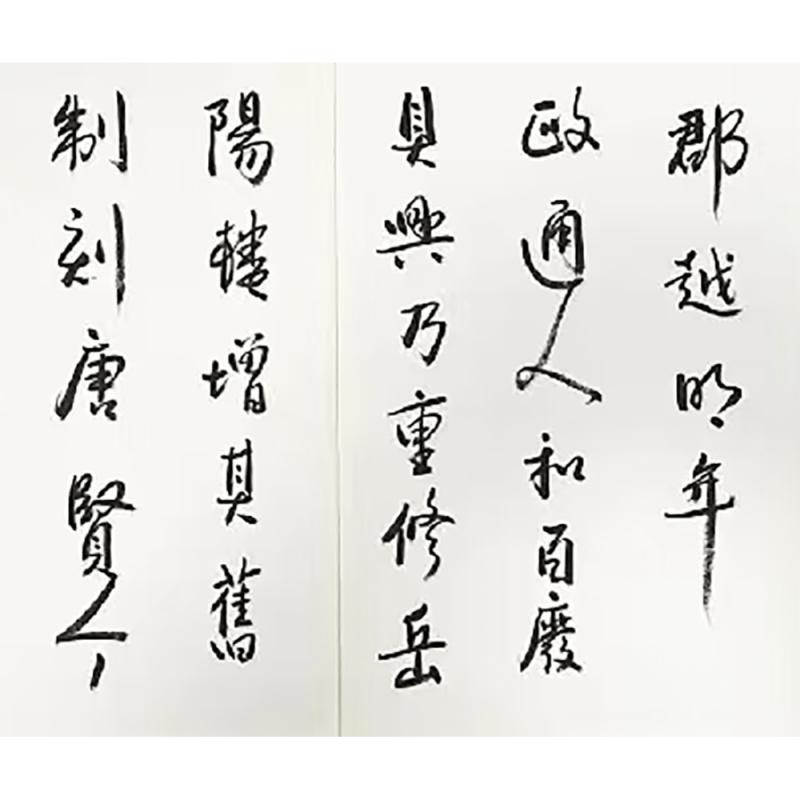 郡越明年
政通人和百廢
具興乃重修岳
陽樓增其舊
制刻唐賢今